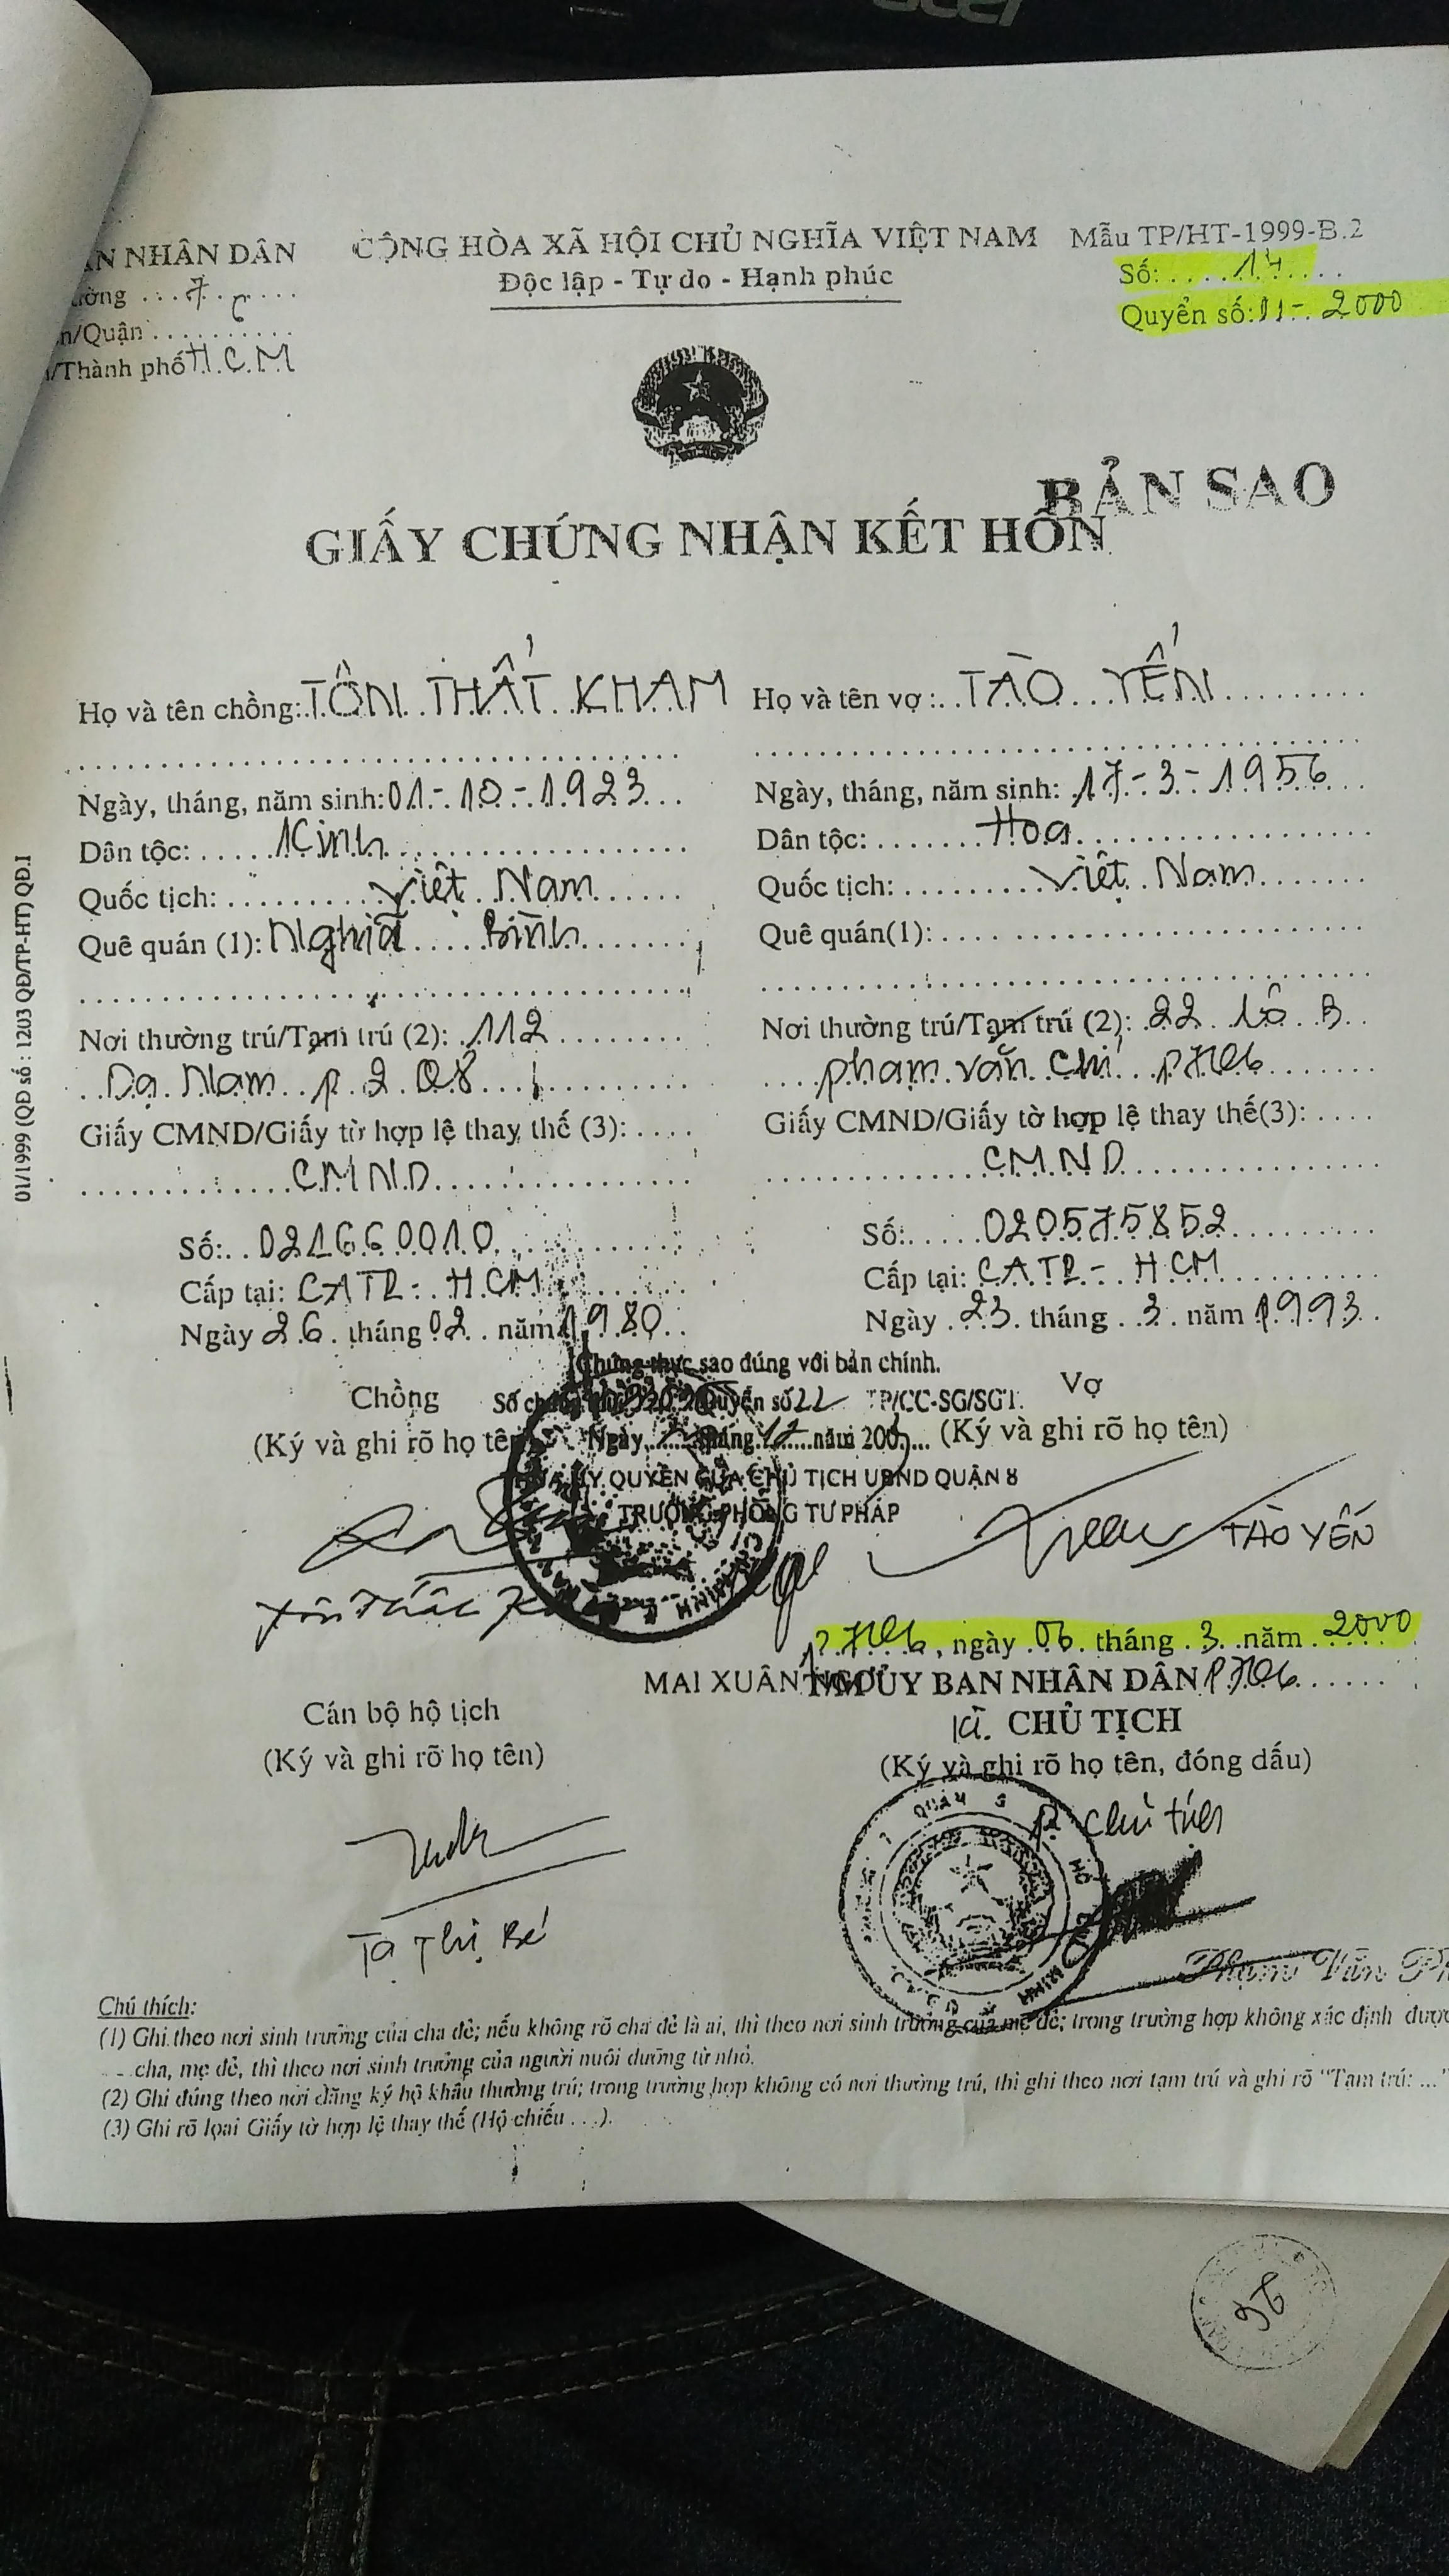 acer
ÂN NHÂN DÂN
CỘNG HÒA XÃ HỘI CHỦ NGHĨA VIỆT NAM
Mẫu TP/HT-1999-B.2
ường ...7.......
Độc lập - Tự do - Hạnh phúc
Số: .....14.....
n/Quận ...6.......
Quyển số: 11 - 2000
/Thành phố H.C.M
BẢN SAO
GIẤY CHỨNG NHẬN KẾT HÔN
Họ và tên chồng: TÔN THẤT KHAM
Họ và tên vợ: TÀO YẾN
Ngày, tháng, năm sinh: 01-10-1923
Ngày, tháng, năm sinh: 17-3-1956
Dân tộc: Kinh
Dân tộc: Hoa
Quốc tịch: Việt Nam
Quốc tịch: Việt Nam
Quê quán (1): Nghĩa Bình
Quê quán(1):
Nơi thường trú/Tạm trú (2): 112
Nơi thường trú/Tạm trú (2): 22 Lô B
Dạ Nam P. 2 Q8
Phạm Văn Chí P7Q6
Giấy CMND/Giấy tờ hợp lệ thay thế (3): ....
Giấy CMND/Giấy tờ hợp lệ thay thế(3): ....
CMND
CMND
Số: 021660010
Số: 020575852
Cấp tại: CATP - HCM
Cấp tại: CATP - HCM
Ngày 26 tháng 02 năm 1980
Ngày 23 tháng 3 năm 1993
01/1999 (QĐ số : 1203 QĐ/TP-HT) QĐ.1
Chứng thực sao đúng với bản chính.
Chồng
Quyển số 22 TP/CC-SG/SGT.
Vợ
(Ký và ghi rõ họ tên)
Ngày tháng 12 năm 200
(Ký và ghi rõ họ tên)
ỦY QUYỀN CỦA CHỦ TỊCH UBND QUẬN 8
TRƯỞNG PHÒNG TƯ PHÁP
TÀO YẾN
Tôn Thất
P7Q6, ngày 06 tháng 3 năm 2000
MAI XUÂN
TM ỦY BAN NHÂN DÂN P7Q6
Cán bộ hộ tịch
KT. CHỦ TỊCH
(Ký và ghi rõ họ tên)
(Ký và ghi rõ họ tên, đóng dấu)
QUẬN 6
P. Chủ tịch
Tạ Thị Bé
Phạm Văn
Chú thích:
(1) Ghi theo nơi sinh trưởng của cha đẻ; nếu không rõ cha đẻ là ai, thì theo nơi sinh trưởng của mẹ đẻ; trong trường hợp không xác định được
cha, mẹ đẻ, thì theo nơi sinh trưởng của người nuôi dưỡng từ nhỏ.
(2) Ghi đúng theo nơi đăng ký hộ khẩu thường trú; trong trường hợp không có nơi thường trú, thì ghi theo nơi tạm trú và ghi rõ "Tạm trú: ..."
(3) Ghi rõ loại Giấy tờ hợp lệ thay thế (Hộ chiếu ...).